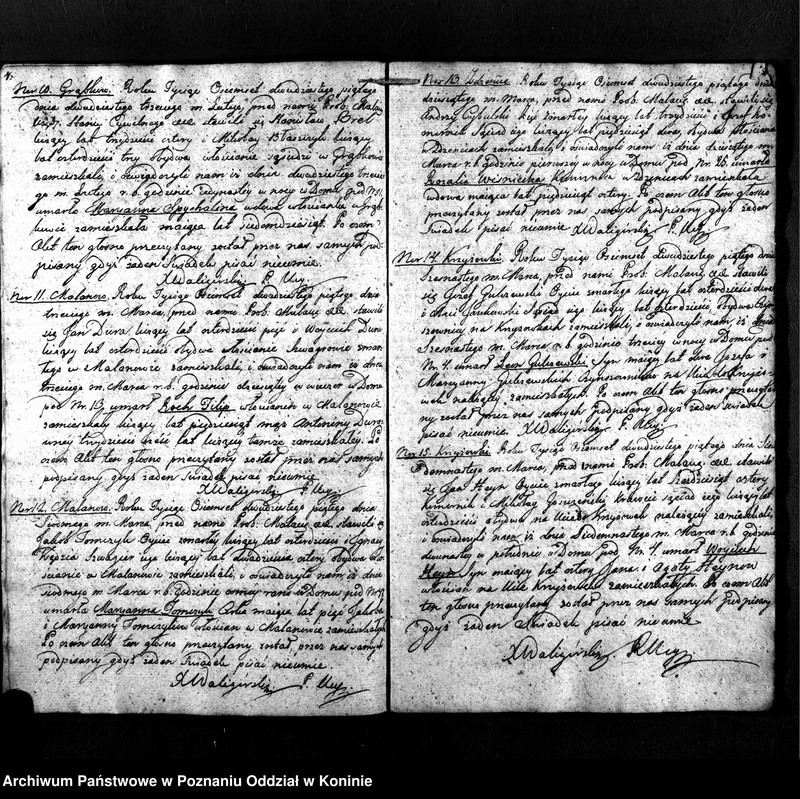 4.
Nro 10. Grąbków. Roku Tysiąc Osiemset dwudziestego piątego
dnia dwudziestego trzeciego m. Lutego, przed nami Prob. Malan.
Urzęd. Stanu Cywilnego stawili się Stanisław
liczący lat trzydzieści cztery i Mikołay Błaszczyk liczący
lat czterdzieści trzy obydwa włościanie sąsiedzi w Grąbkowie
zamieszkali, i oświadczyli nam iż dnia dwudziestego trzecie
go m. Lutego r. b. godzinie w nocy w Domu pod Nr
umarła Maryanna Spychalina wdowa w Grąb
kowie zamieszkała maiąca lat siedemdziesiąt. Po czem
Akt ten głośno przeczytany został przez nas samych pod
pisany gdyż żaden Świadek pisać nieumie.
XWaligórski P. Urz.
Nro 11. Malanów. Roku Tysiąc Osiemset dwudziestego piątego dnia
trzeciego m. Marca, przed nami Prob. Malan. stawili
się Jan Dura liczący lat czterdzieści pięć i Woyciech Dura
liczący lat czterdzieści obydwa włościanie Szwagrowie zmar
łego w Malanowie zamieszkali, i oświadczyli nam iż dnia
trzeciego m. Marca r. b. godzinie dziesiątey w wieczór w Domu
pod Nr. 13 umarł Roch Filip włościanin w Malanowie
zamieszkały liczący lat pięćdziesiąt mąż Antoniny
trzydzieści sześć lat liczącey tamże zamieszkałey. Po
czem Akt ten głośno przeczytany został przez nas samych
podpisany gdyż żaden Świadek pisać nieumie
XWaligórski P. Urz.
Nro 12. Malanów. Roku Tysiąc Osiemset dwudziestego piątego dnia
Siódmego m. Marca, przed nami Prob. Malan. stawili się
Jakob Tomczyk Oyciec zmarłey liczący lat czterdzieści i Ignacy
Kędzia Szwagier iego liczący lat dwadzieścia cztery, obydwa wło
ścianie w Malanowie zamieszkali, i oświadczyli nam iż dnia
siódmego m. Marca r. b. Godzinie ósmey rano w Domu pod Nr
umarła Maryanna Tomczyk Córka maiąca lat pięć Jakoba
i Maryanny Tomczyków włościan w Malanowie zamieszkałych
Po czem Akt ten głośno przeczytany został, przez nas samych
podpisany gdyż żaden Świadek pisać nieumie.
XWaligórski P. Urz.
Nro 13 Dzienice Roku Tysiąc Osiemset dwudziestego piątego dnia
dziesiątego m. Marca, przed nami Prob. Malan. stawili się
Andrzy Cybulski zmarłey liczący lat trzydzieści i Józef ko
mornik Sąsiad iego liczący lat pięćdziesiąt dwa, obydwa
w zamieszkali, i oświadczyli nam iż dnia dziesiątego m.
Marca r. b. godzinie pierwszey w nocy w Domu pod Nr. 26 umarła
Rozalia Wiśniecka Komornica w zamieszkała
wdowa maiąca lat pięćdziesiąt cztery. Po czem Akt ten głośno
przeczytany został przez nas samych podpisany gdyż żaden
Świadek pisać nieumie XWaligórski P. Urz.
Nro 14. Krzyżówki. Roku Tysiąc Osiemset dwudziestego piątego dnia
Szesnastego m. Marca, przed nami Prob. Malan. stawili
się Józef Gulczewski Oyciec zmarłego liczący lat czterdzieści dwa
i Maci Jankowski Sąsiad iego liczący lat czterdzieści, obydwa Czyn
szownicy na Krzyżówkach zamieszkali, i oświadczyli nam iż dnia
Szesnastego m. Marca r. b. godzinie trzeciey w nocy w Domu pod
Nr. 4. umarł Leon Gulczewski Syn maiący lat dwa Józefa i
Maryanny Gulczewskich Czynszowników na Krzyżó
wkach zamieszkałych. Po czem Akt ten głośno przeczyta
ny został przez nas samych podpisany gdyż żaden Świadek
pisać nieumie. XWaligórski P. Urz.
Nro 15. Krzyżówki. Roku Tysiąc Osiemset dwudziestego piątego dnia Sie
demnastego m. Marca, przed nami Prob. Malan. stawili
się Jan Heyn Oyciec zmarłego liczący lat sześćdziesiąt cztery
i Mikołay sąsiad iego liczący lat
czterdzieści obydwa na Krzyżówek należącey zamieszkali
i oświadczyli nam iż dnia Siedemnastego m. Marca r. b. godzinie
dwunastey w południe w Domu pod Nr. 4. umarł Woyciech
Heyn Syn maiący lat cztery Jana i Agaty Heynów
na Krzyżówki zamieszkałych. Po czem Akt
ten głośno przeczytany został przez nas samych podpisany
gdyż żaden Świadek pisać nieumie
XWaligórski P. Urz.
Archiwum Państwowe w Poznaniu Oddział w Koninie